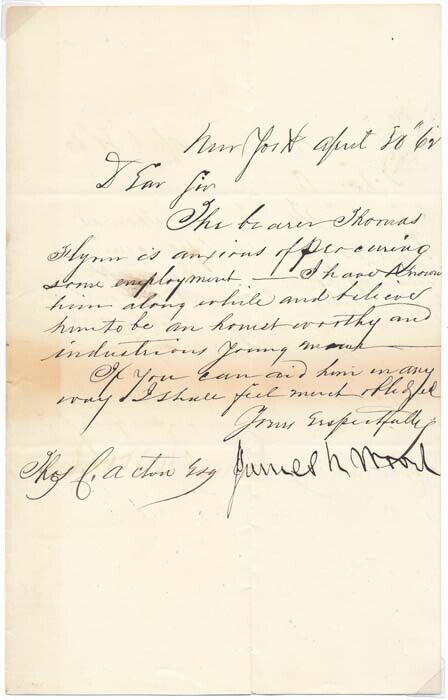 New York april 30" 62
D Ear Sir
The bearer Thomas
Flynn is anxious of procuring
some employment — I have known
him along while and believe
him to be an honest worthy and
industrious young man —
If you can aid him in any
way I shall feel much obliged
Yours Respectfully
Thos C. Acton Esq James R Wood